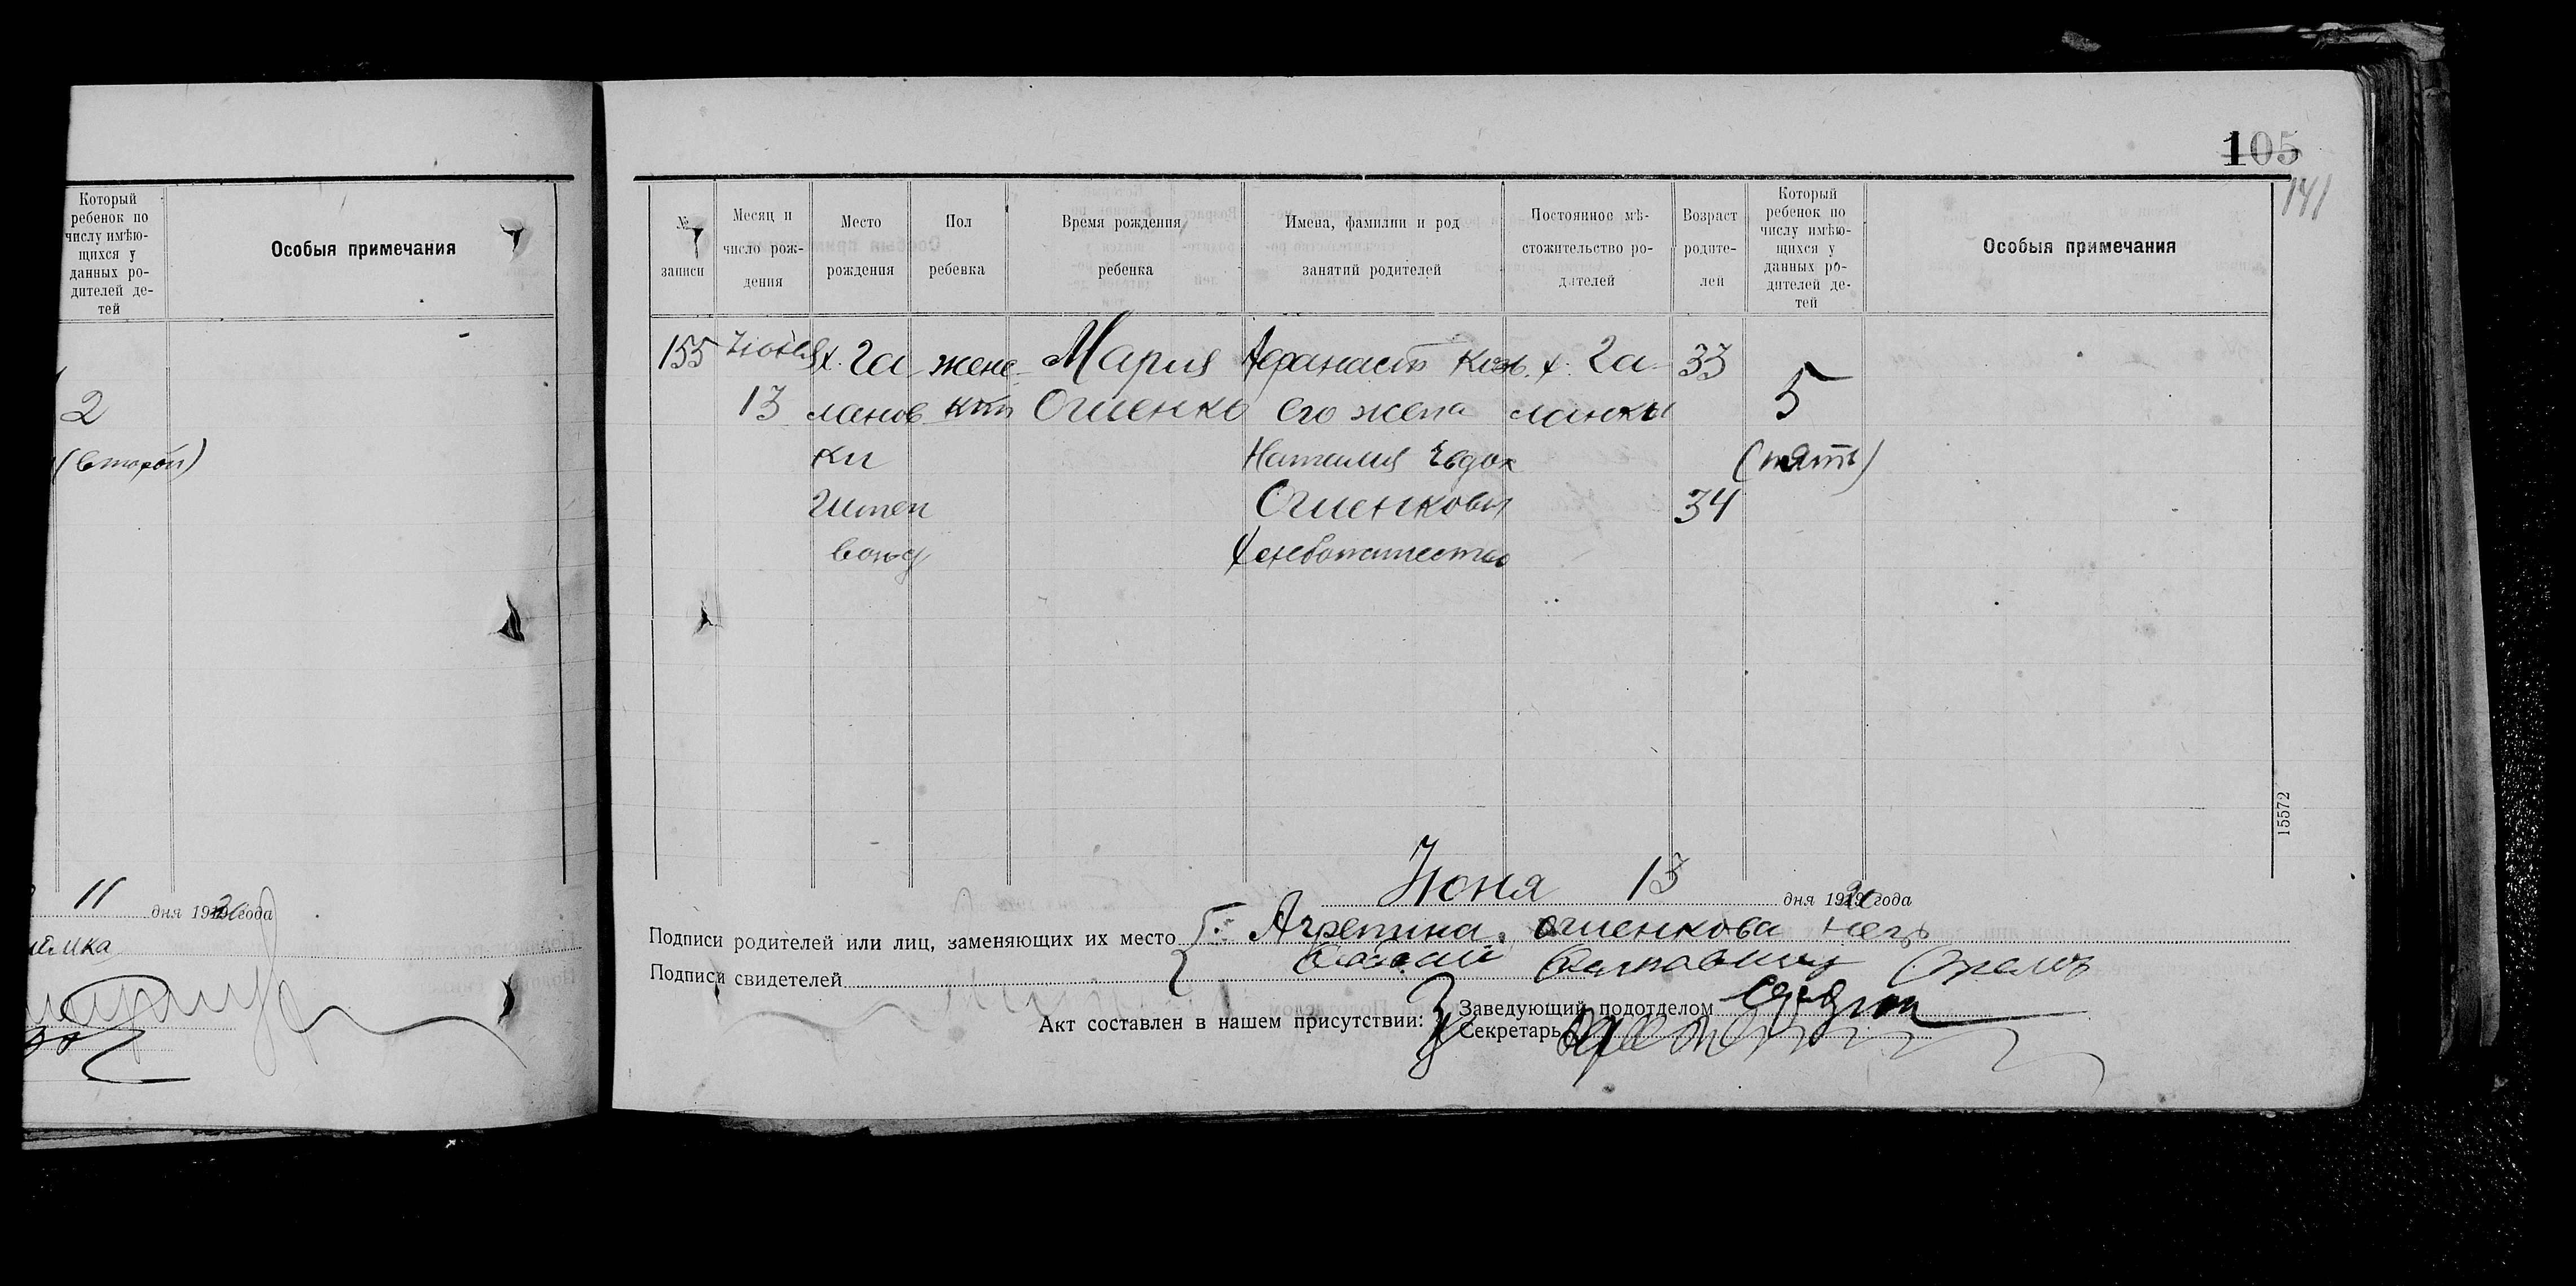 105
141
Который
ребенок по
числу имѣю-
щихся у
данных ро-
дителей де-
тей
Особыя примечания
2
(второй)
11 дня 1920 года
№
записи
Месяц и
число рож-
дения
Место
рождения
Пол
ребенка
Время рождения
ребенка
Имена, фамилии и род
занятий родителей
Постоянное мѣ-
стожительство ро-
дителей
Возраст
родите-
лей
Который
ребенок по
числу имѣю-
щихся у
данных ро-
дителей де-
тей
Особыя примечания
155 х. Га жене Мария Афанасий х. Га 33
13 ланов Огиенко его жена ланки 5
ки Наталия Евдок (пять)
Огиенкова 34
Хлебопашество
15572
Июня 13 дня 1920 года
Подписи родителей или лиц, заменяющих их место Агрепина Огиенкова
Подписи свидетелей
Акт составлен в нашем присутствии:
Заведующий подотделом
Секретарь